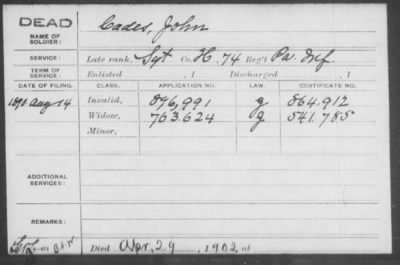 DEAD
NAME OF SOLDIER:
Cades, John
SERVICE:
Late rank, Sgt Co. H, 74 Reg't Pa Inf.
TERM OF SERVICE:
Enlisted , 1 Discharged , 1
DATE OF FILING. CLASS. APPLICATION NO. LAW. CERTIFICATE NO.
1890 Aug 14 Invalid, 896,991 g 864.912
Widow, 763.624 g 541.785
Minor,
ADDITIONAL SERVICES:
REMARKS:
Died Apr. 29, 1902, at